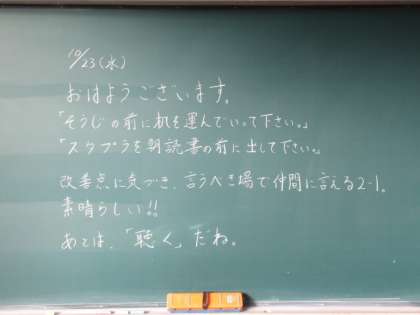 10/23(水)
おはようございます。
「そうじの前に机を運んでいって下さい。」
「スクプラを朝読書の前に出して下さい。」
改善点に気づき、言うべき場で仲間に言える2-1。
素晴らしい!!
あとは、「聴く」だね。